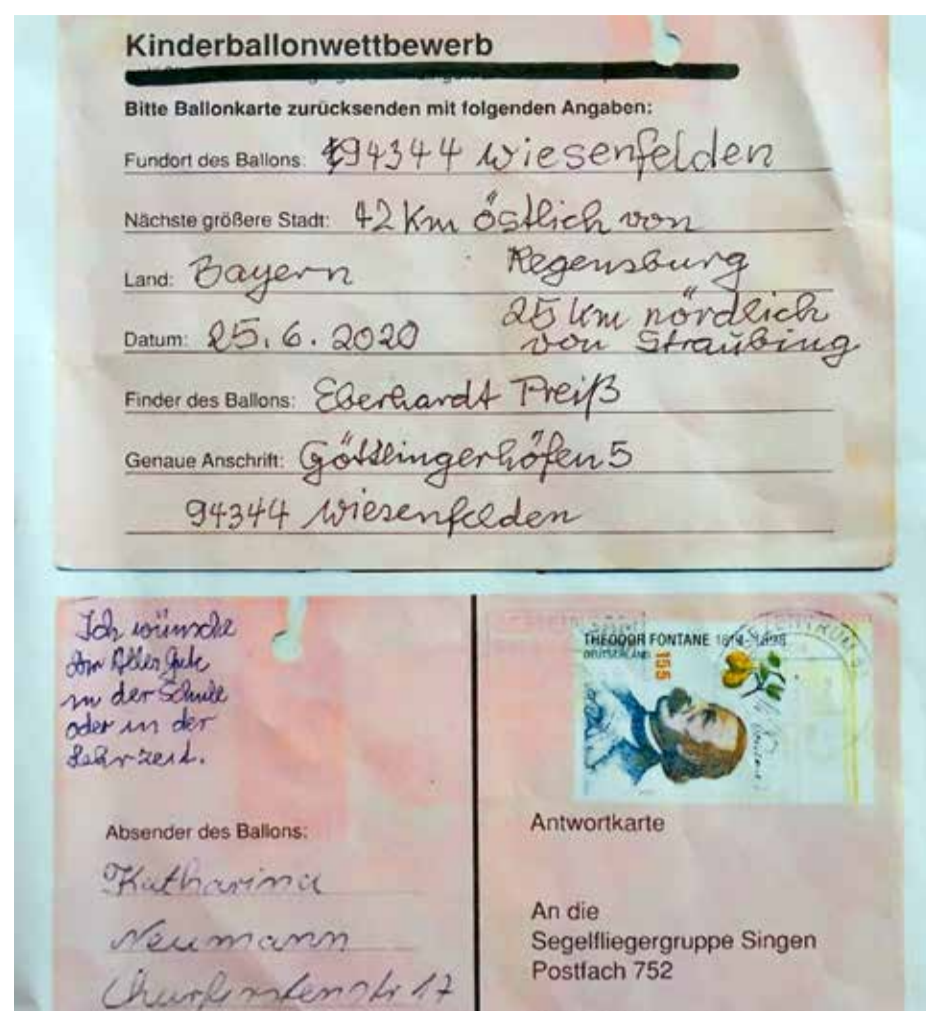 Kinderballonwettbewerb
Bitte Ballonkarte zurücksenden mit folgenden Angaben:
Fundort des Ballons: 94344 Wiesenfelden
Nächste größere Stadt: 42 Km östlich von
Regensburg
Land: Bayern
25 km nördlich
von Straubing
Datum: 25.6.2020
Finder des Ballons: Eberhardt Preiß
Genaue Anschrift: 5
94344 Wiesenfelden
Ich wünsche
Alles Gute
in der Schule
oder in der
Lehrzeit.
THEODOR FONTANE 1819-1898
DEUTSCHLAND
155
Absender des Ballons:
Katharina
Neumann
17
Antwortkarte
An die
Segelfliegergruppe Singen
Postfach 752